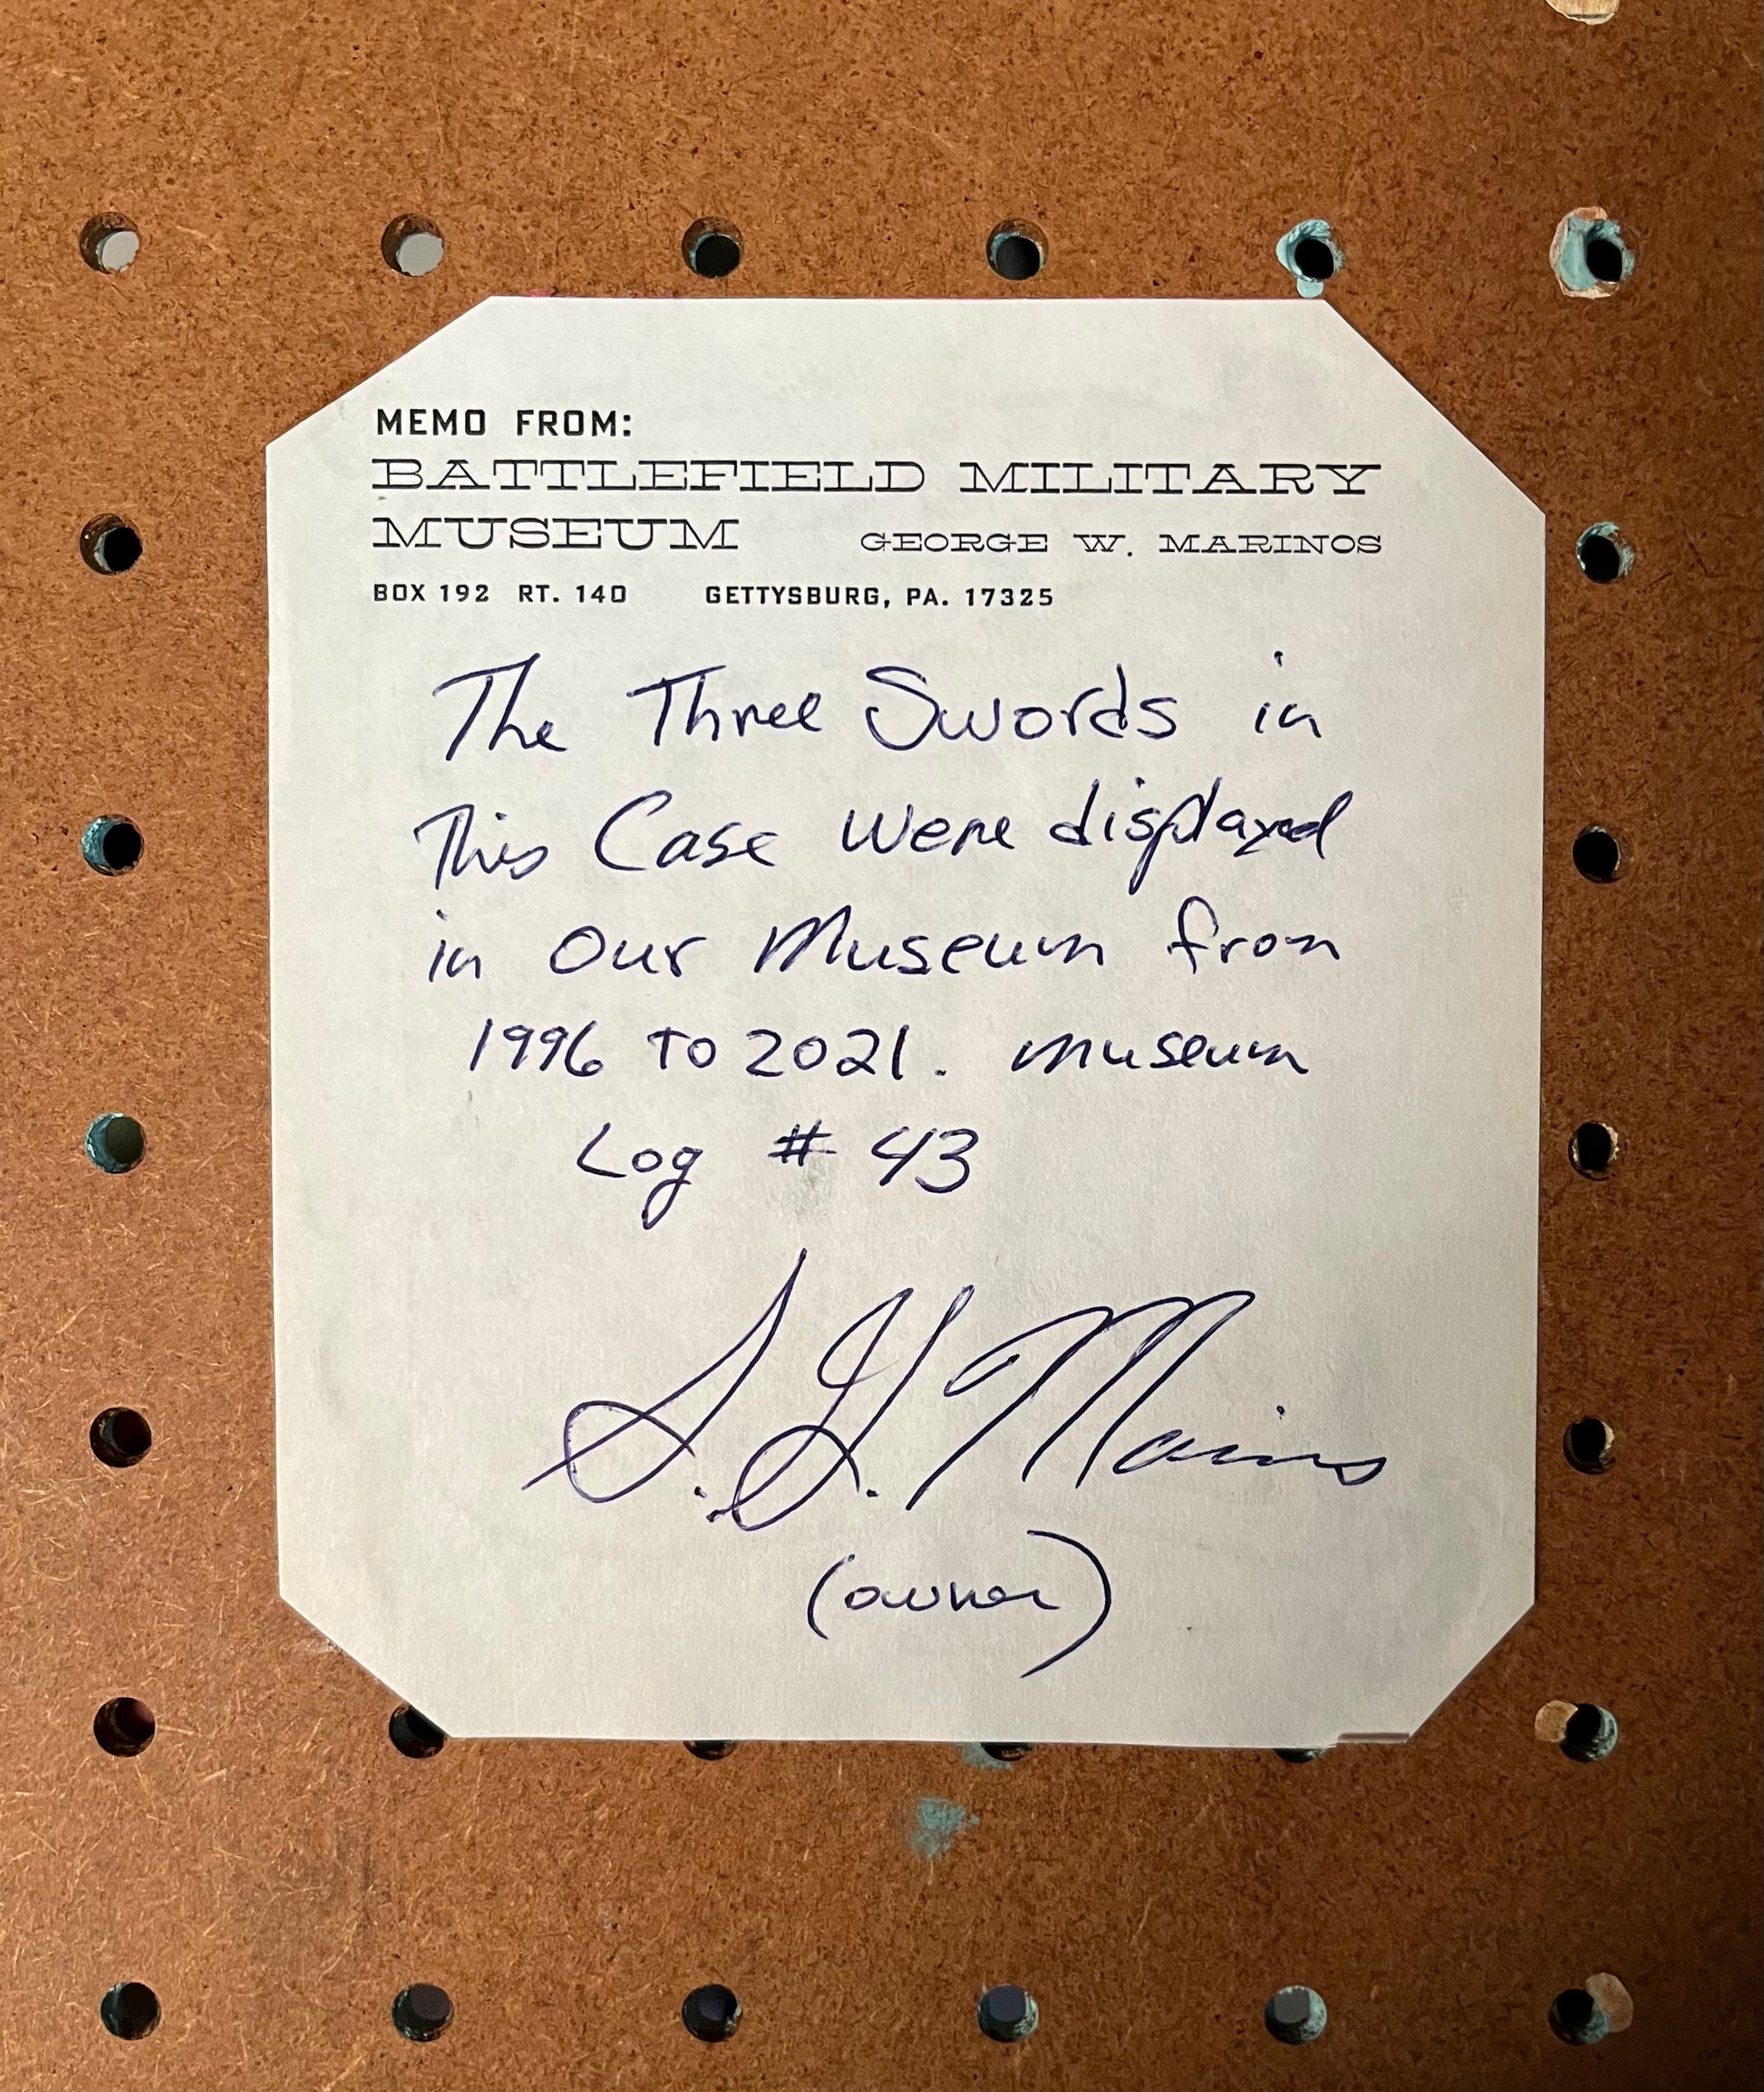 MEMO FROM:
BATTLEFIELD MILITARY
MUSEUM GEORGE W. MARINOS
BOX 192 RT. 140 GETTYSBURG, PA. 17325
The Three Swords in
This Case Were displayed
in Our Museum from
1996 TO 2021. museum
Log # 43
(owner)